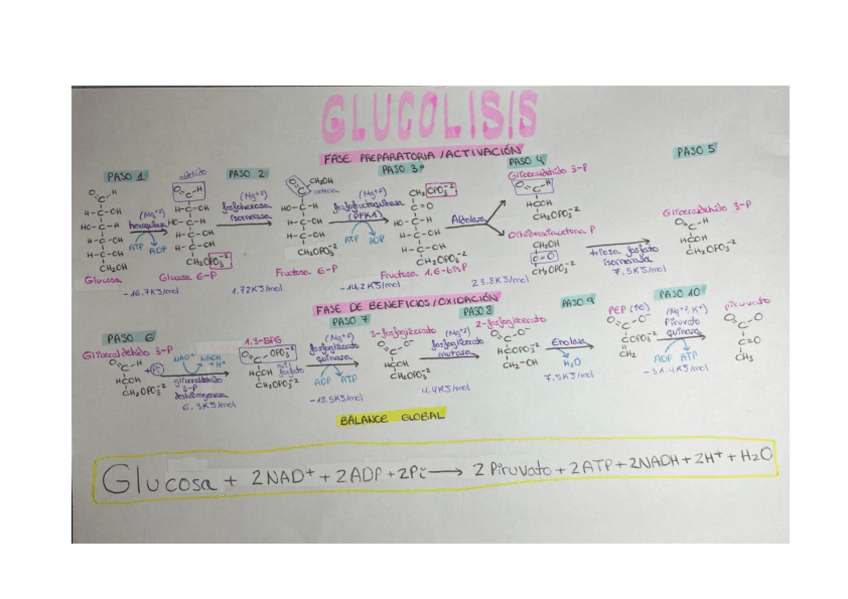 GLUCÓLISIS
FASE PREPARATORIA/ACTIVACIÓN
PASO 1
aldehído
PASO 2
PASO 3
PASO 4
PASO 5
Gliceraldehído 3-P
(Mg+2)
hexoquinasa
ATP ADP
Glucosa
-16.7KJ/mol
Glucosa 6-P
(Mg+2)
fosfohexosa
isomerasa
1.72KJ/mol
cetona
Fructosa 6-P
(Mg+2)
fosfofructoquinasa
(PFK1)
ATP ADP
-14,2KJ/mol
Fructosa 1,6-bisP
Aldolasa
23.8KJ/mol
Dihidroxiacetona P
triosa fosfato
isomerasa
7.5KJ/mol
Gliceraldehído 3-P
FASE DE BENEFICIOS/OXIDACIÓN
PASO 6
PASO 7
PASO 8
PASO 9
PASO 10
Gliceraldehído 3-P
+Pi
NAD+ NADH
+H+
gliceraldehído
3-P
deshidrogenasa
6.3KJ/mol
1,3-BFG
(Mg+2)
fosfoglicerato
quinasa
ADP ATP
-18.5KJ/mol
3-fosfoglicerato
(Mg+2)
fosfoglicerato
mutasa
4.4KJ/mol
2-fosfoglicerato
Enolasa
H2O
7.5KJ/mol
(Mg+2, K+)
Piruvato
quinasa
ADP ATP
-31.4KJ/mol
Piruvato
BALANCE GLOBAL
Glucosa + 2NAD+ + 2ADP + 2Pi → 2 Piruvato + 2ATP + 2NADH + 2H+ + H2O